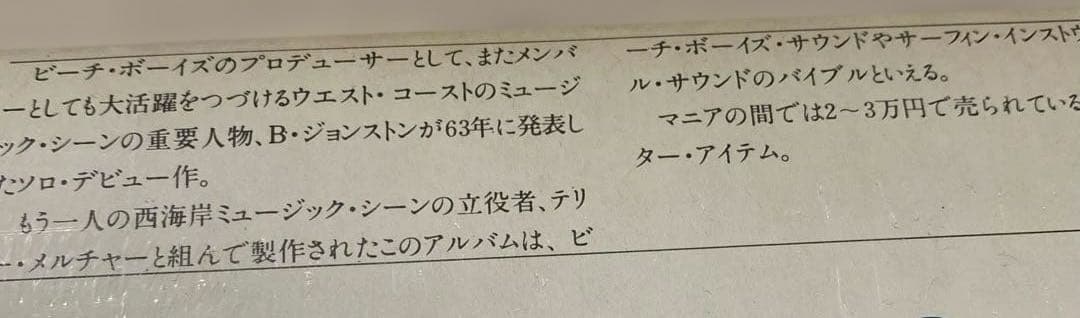 ビーチ・ボーイズのプロデューサーとして、またメンバ
ーとしても大活躍をつづけるウエスト・コーストのミュージ
ック・シーンの重要人物、B・ジョンストンが63年に発表し
たソロ・デビュー作。
もう一人の西海岸ミュージック・シーンの立役者、テリ
ー・メルチャーと組んで製作されたこのアルバムは、ビ
ーチ・ボーイズ・サウンドやサーフィン・インストゥ
ル・サウンドのバイブルといえる。
マニアの間では2〜3万円で売られている
ター・アイテム。